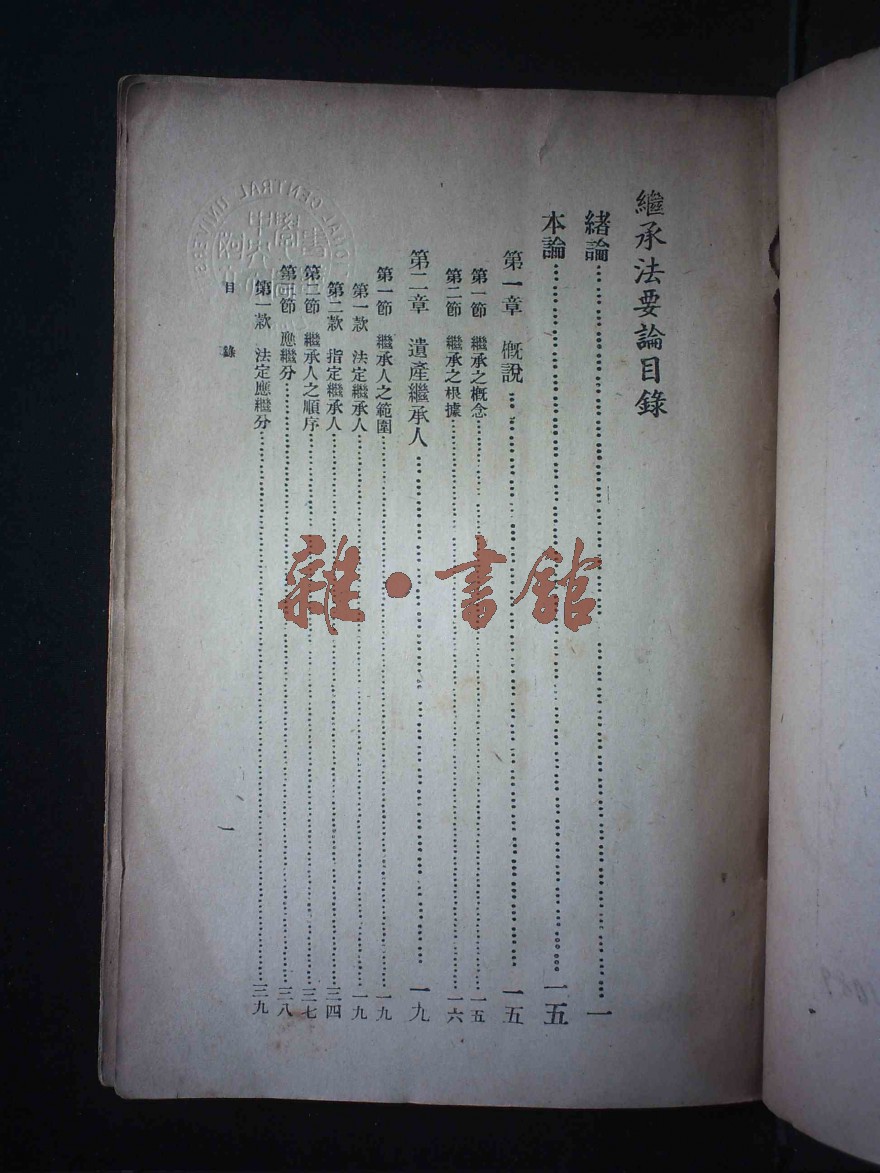 繼承法要論目錄
緒論……一
本論……一五
第一章 概說……一五
第一節 繼承之概念……一五
第二節 繼承之根據……一六
第二章 遺產繼承人……一九
第一節 繼承人之範圍……一九
第一款 法定繼承人……一九
第二款 指定繼承人……三四
第二節 繼承人之順序……三七
第三節 應繼分……三八
第一款 法定應繼分……三九
目錄 一
雜·書館